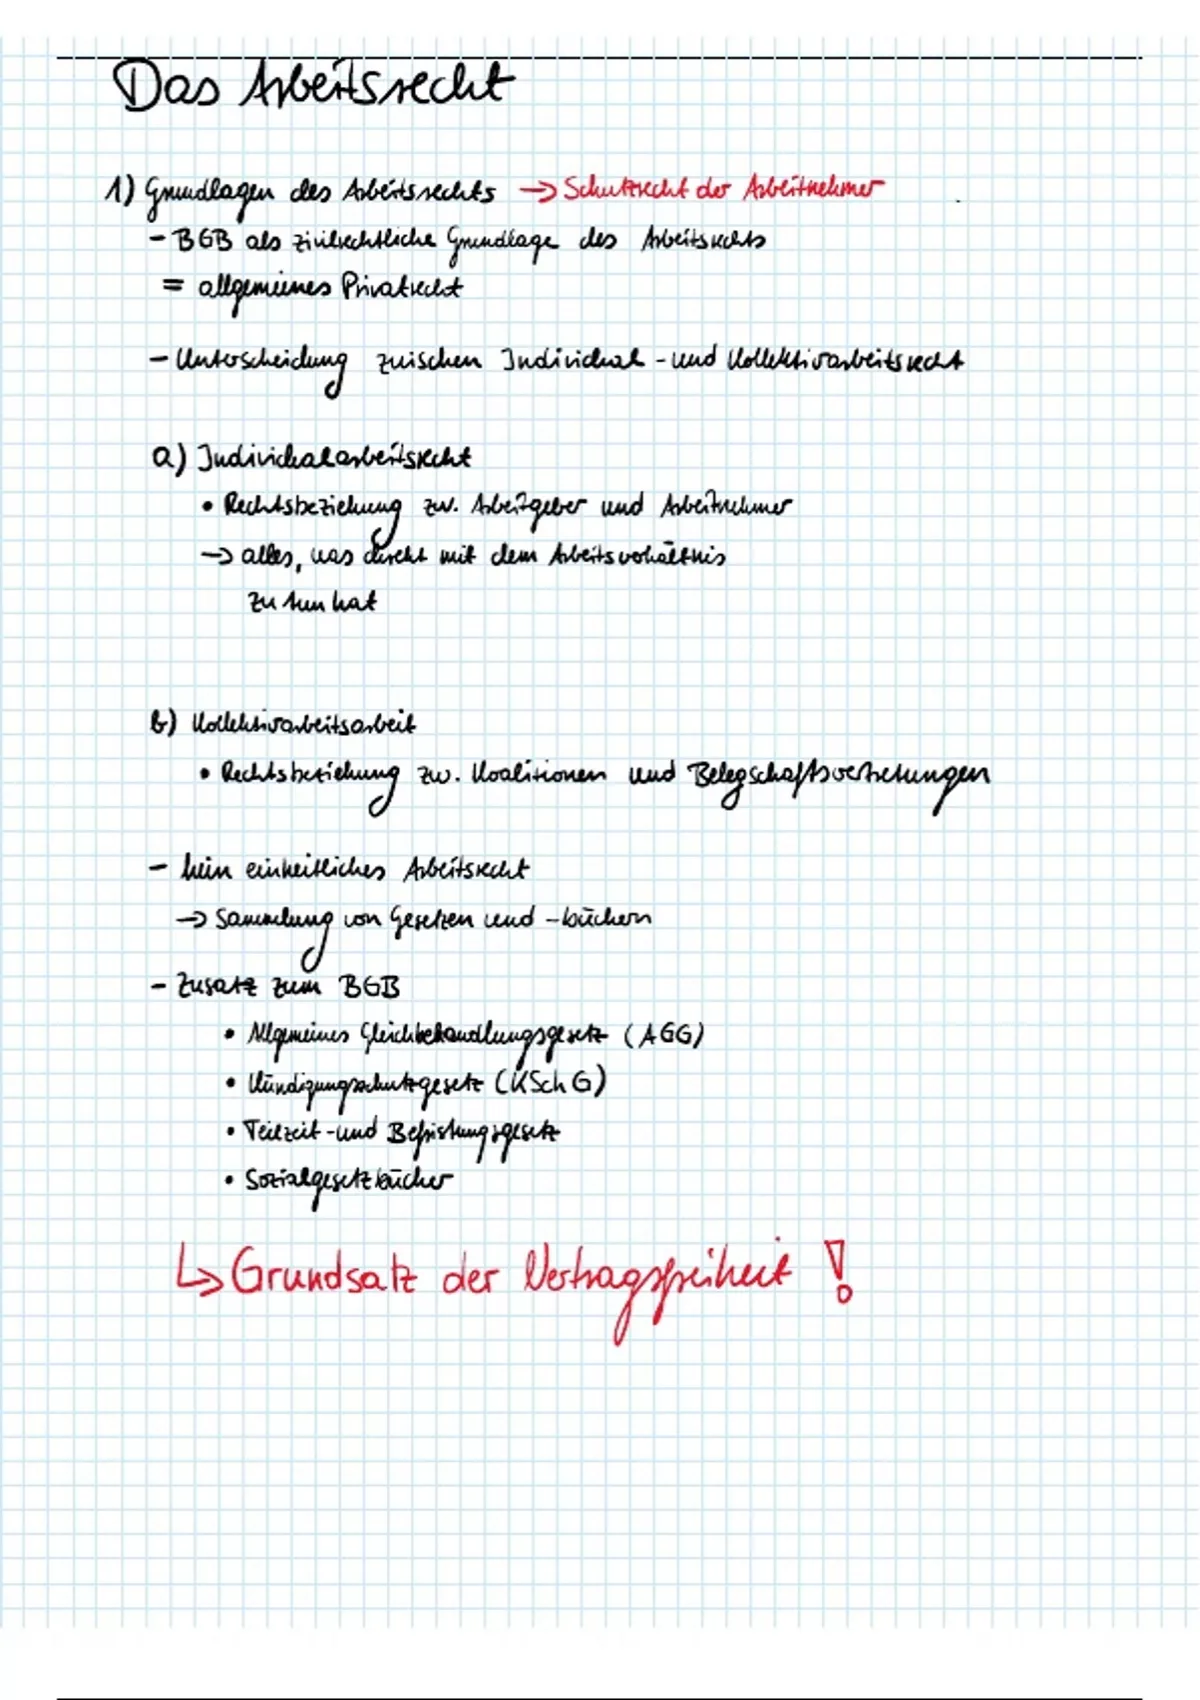 Das Arbeitsrecht
1) Grundlagen des Arbeitsrechts → Schutzrecht der Arbeitnehmer
- BGB als zivilrechtliche Grundlage des Arbeitsrechts
= allgemeines Privatrecht
- Unterscheidung zwischen Individual - und Kollektivarbeitsrecht
a) Individualarbeitsrecht
• Rechtsbeziehung zw. Arbeitgeber und Arbeitnehmer
→ alles, was direkt mit dem Arbeitsverhältnis
zu tun hat
b) Kollektivarbeitsarbeit
• Rechtsbeziehung zw. Koalitionen und Belegschaftsvertretungen
- kein einheitliches Arbeitsrecht
→ Sammlung von Gesetzen und -büchern
- Zusatz zum BGB
• Allgemeines Gleichbehandlungsgesetz (AGG)
• Kündigungsschutzgesetz (KSchG)
• Teilzeit-und Befristungsgesetz
• Sozialgesetzbücher
↳ Grundsatz der Vertragsfreiheit !